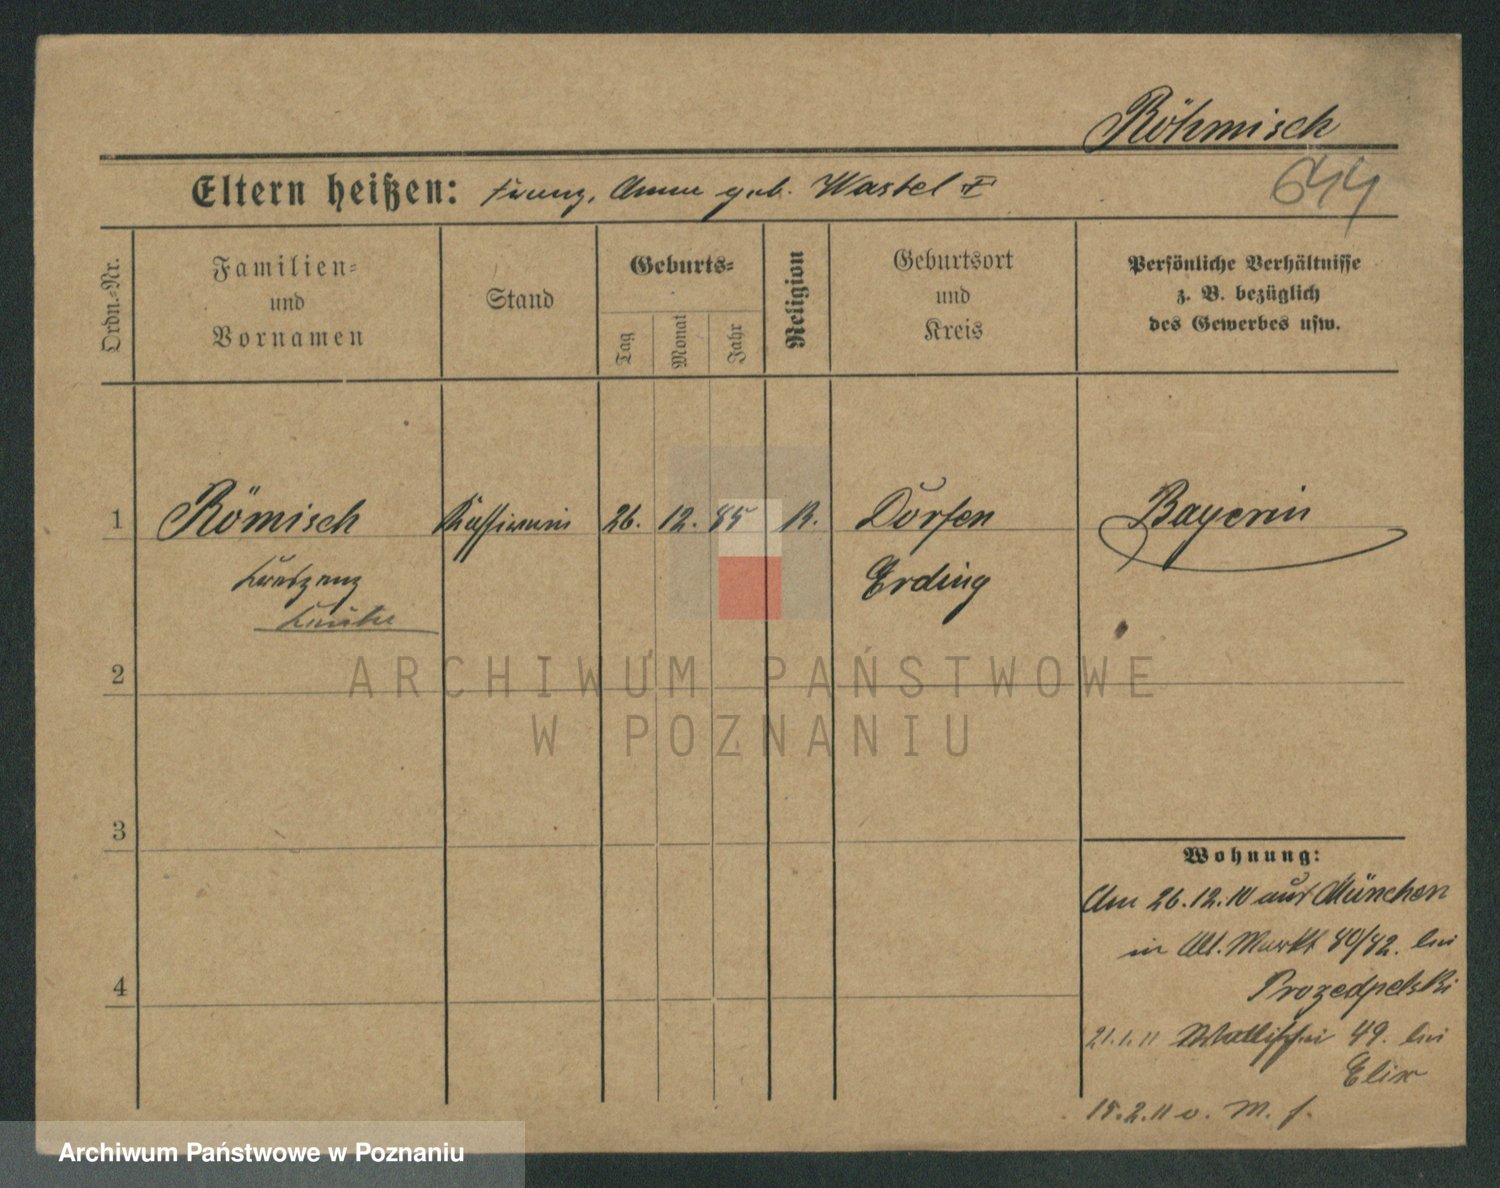 Röhmisch
644
Eltern heißen: Franz, Anna geb. Wastel
Ordn.-Nr.
Familien-
und
Vornamen
Stand
Geburts-
Tag
Monat
Jahr
Religion
Geburtsort
und
Kreis
Persönliche Verhältnisse
z. B. bezüglich
des Gewerbes usw.
1 Römisch Kassirerin 26. 12. 85 K. Dorfen Bayerin
Kreszenz Erding
2
3
4
Wohnung:
Am 26.12.10 aus München
in Alt. Markt 40/42. bei
21.1.11 Wallischei 49. bei
15.2.11 v. M. f.
ARCHIWUM PAŃSTWOWE
W POZNANIU
Archiwum Państwowe w Poznaniu